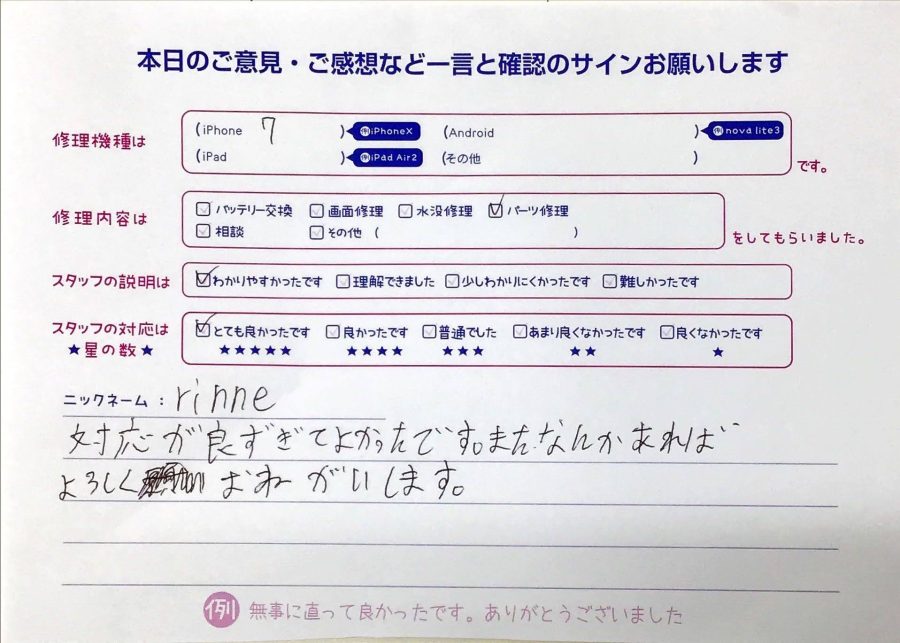 本日のご意見・ご感想など一言と確認のサインお願いします
修理機種は (iPhone 7 ) 例iPhoneX (Android ) 例nova lite3
(iPad ) 例iPad Air2 (その他 ) です。
修理内容は バッテリー交換 画面修理 水没修理 パーツ修理
相談 その他 ( ) をしてもらいました。
スタッフの説明は わかりやすかったです 理解できました 少しわかりにくかったです 難しかったです
スタッフの対応は とても良かったです 良かったです 普通でした あまり良くなかったです 良くなかったです
★星の数★ ★★★★★ ★★★★ ★★★ ★★ ★
ニックネーム : rinne
対応が良すぎてよかったです。またなんかあれば
よろしく おねがいします。
例 無事に直って良かったです。ありがとうございました